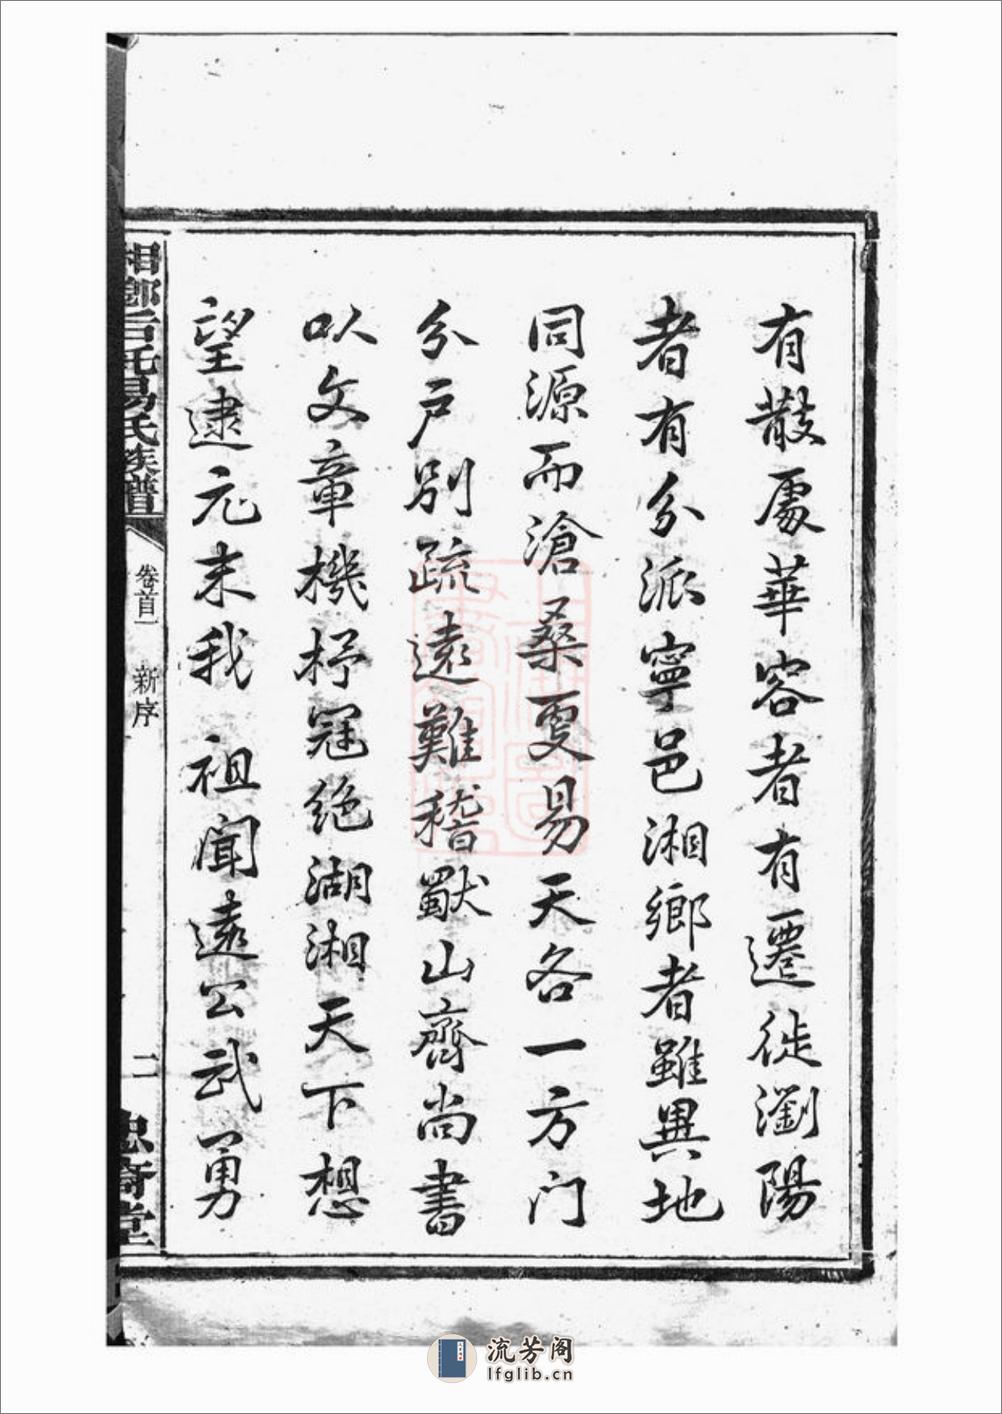 有散處華容者有遷徙瀏陽
者有分派寧邑湘鄉者雖異地
同源而滄桑更易天各一方门
分户别疏遠難稽獸山齋尚書
以文章機杼冠絶湖湘天下想
望逮元末我 祖聞遠公武勇
湘鄉石䂖易氏族譜
卷首一 新序
二
忠奇堂
流芳阁
lfglib.cn